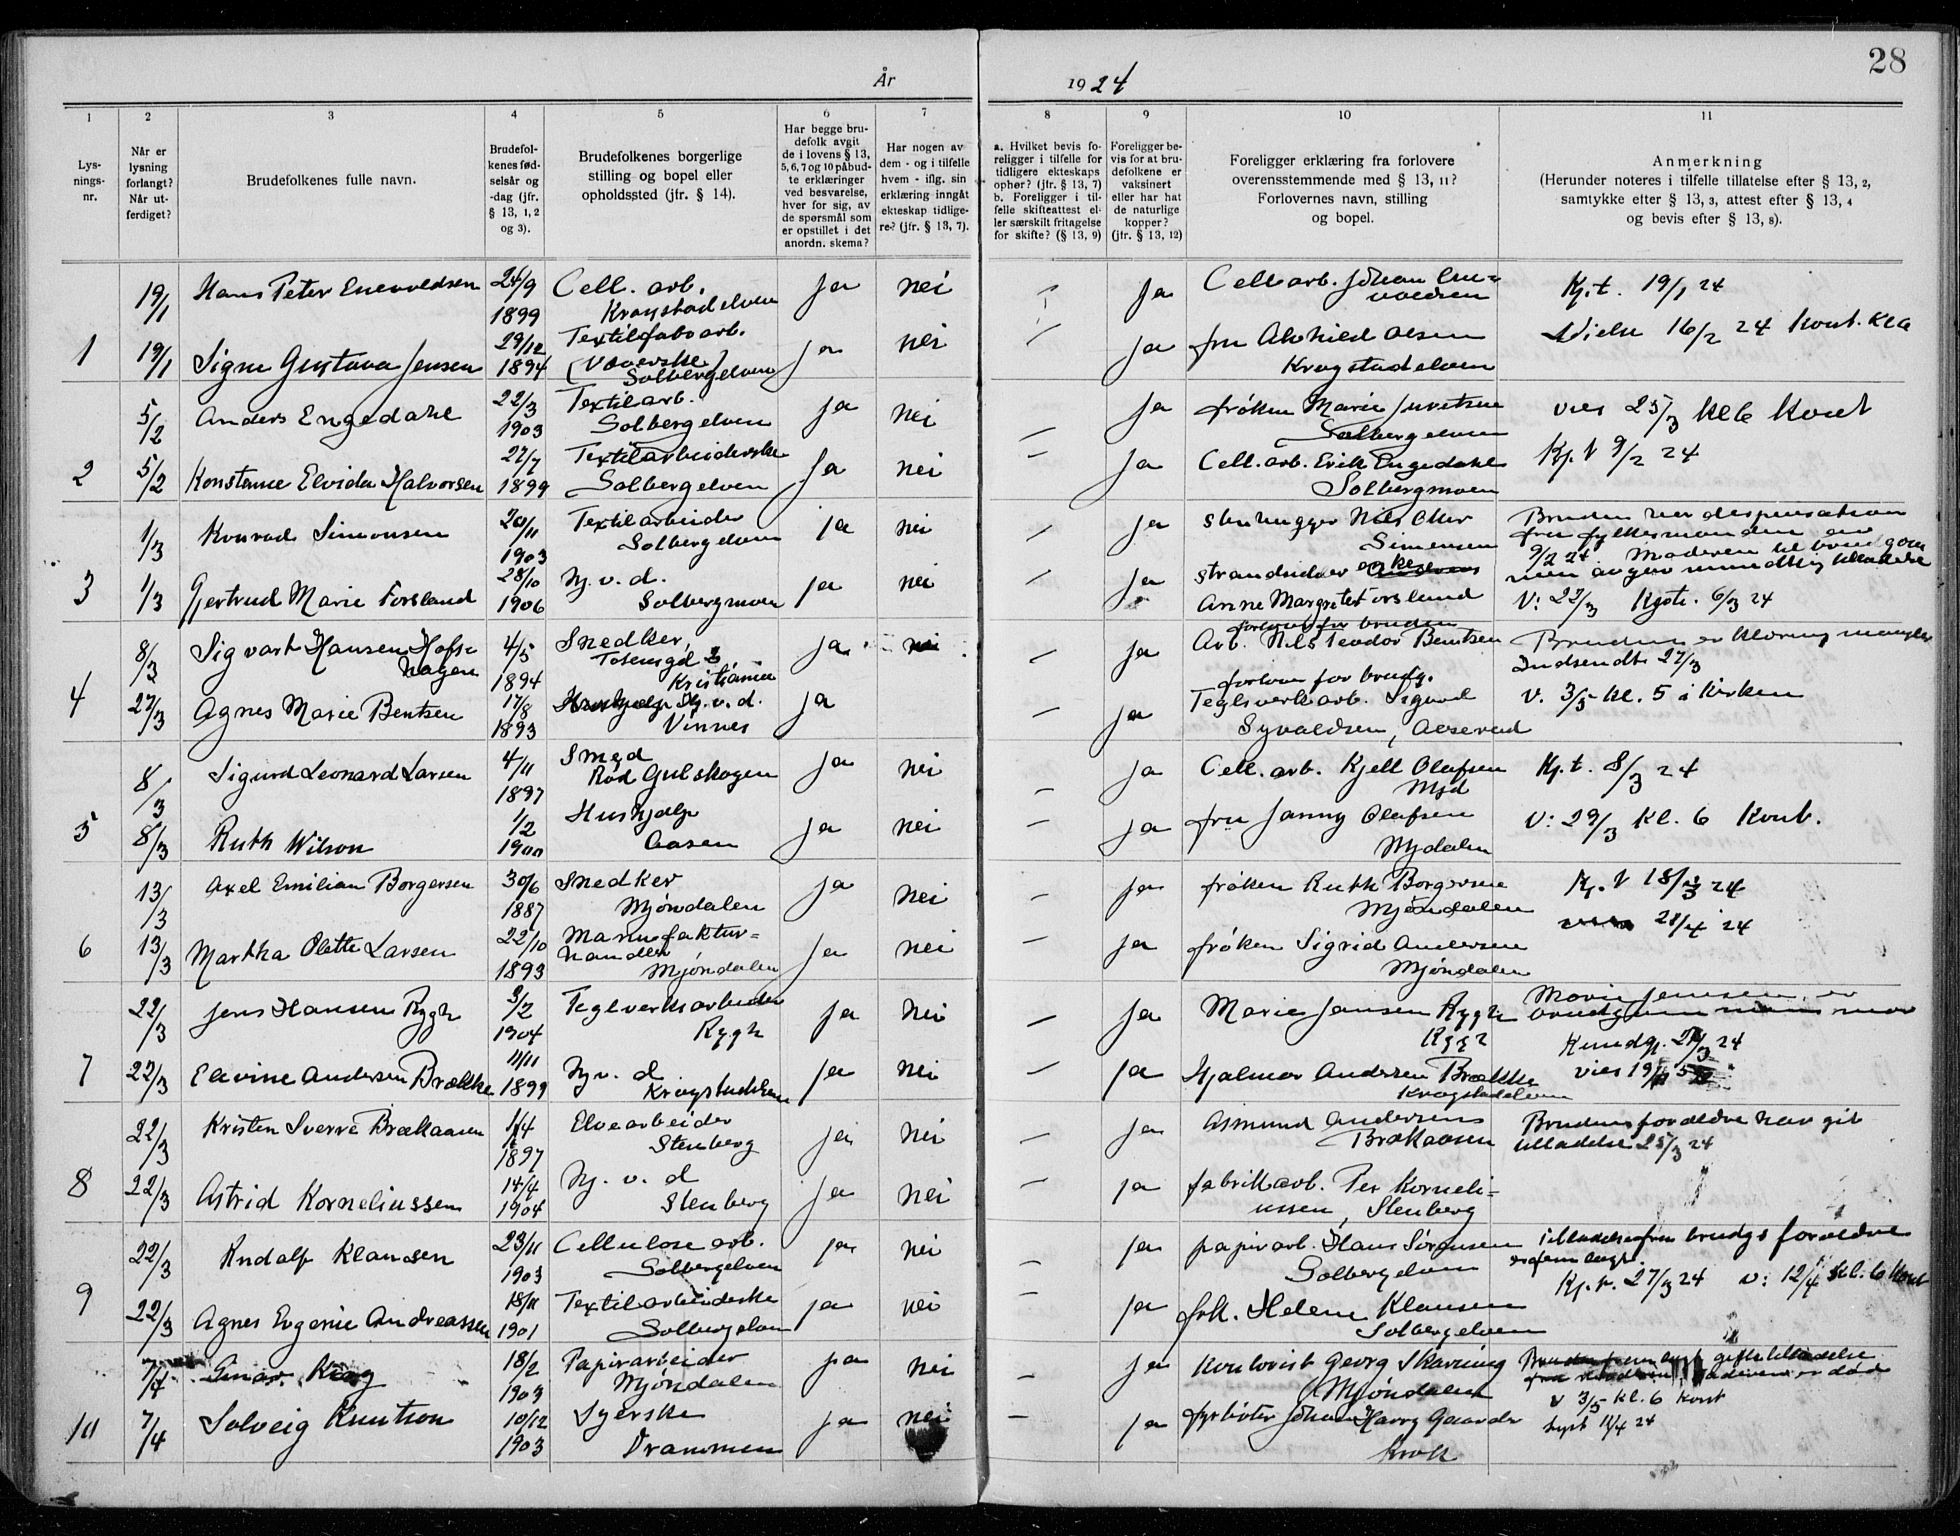 28
År 1924
1 2 3 4 5 6 7 8 9 10 11
Lys-
nings-
nr.
Når er
lysning
forlangt?
Når ut-
ferdiget?
Brudefolkenes fulle navn.
Brudefol-
kenes fød-
selsår og
-dag (jfr.
§ 13, 1, 2
og 3).
Brudefolkenes borgerlige
stilling og bopel eller
opholdssted (jfr. § 14).
Har begge bru-
defolk avgit
de i lovens § 13,
5, 6, 7 og 10 påbud-
te erklæringer
ved besvarelse,
hver for sig, av
de spørsmål som
er opstillet i det
anordn. skema?
Har nogen av
dem - og i tilfelle
hvem - iflg. sin
erklæring inngått
ekteskap tidlige-
re? (jfr. § 13, 7).
a. Hvilket bevis fo-
religger i tilfelle for
tidligere ekteskaps
ophør? (jfr. § 13, 7)
b. Foreligger i til-
felle skifteattest el-
ler særskilt fritagelse
for skifte? (§ 13, 9)
Foreligger be-
vis for at bru-
defolkene er
vaksinert
eller har hat
de naturlige
kopper?
(jfr. § 13, 12)
Foreligger erklæring fra forlovere
overensstemmende med § 13, 11?
Forlovernes navn, stilling
og bopel.
Anmerkning
(Herunder noteres i tilfelle tillatelse efter § 13, 2,
samtykke efter § 13, 3, attest efter § 13, 4
og bevis efter § 13, 8).
19/1 Hans Peter Enevoldsen 24/9 1899 Cell. arb. Krogstadelven ja nei ja Cell arb. Johan Ene=voldsen Kj.t. 19/1 24
1 19/1 Signe Gustava Jensen 29/12 1894 Textilfabarb. (Væverske) Solbergelven ja nei ja fru Alvhild Olsen Krogstadelven Vielse 16/2 24 Kont. Kl 6
5/2 Anders Engedahl 22/3 1903 Textilarb. Solbergelven ja nei ja frøken Marie Juvetsen Solbergelven vies 25/3 Kl 6 Kont
2 5/2 Konstanse Elvida Halvorsen 27/7 1899 Textilarbeiderske Solbergelven Ja nei ja Cell. arb. Erik Engedahl Solbergmoen Kj. t 9/2 24
1/3 Konrad Simonsen 20/11 1903 Textilarbeider Solbergelven ja nei ja stenhugger Nils Simensen Bruden har dispensation fra fylkesmanden 9/2 24
3 1/3 Gjertrud Marie Forsland 28/10 1906 Hj. v. d. Solbergmoen ja nei ja Anne Margrete Forsland Moderen til brudgommen avgir mundtlig tilladelse V: 22/3 6/3 24
8/3 Sigvart Hansen Hofs=hagen 4/5 1894 Snedker, Kristiania ja nei ja forlover for bruden Arb. Nils Teodor Bentsen Brudens erklæring mangler Indsendt 27/3
4 27/3 Agnes Marie Bentsen 17/8 1893 Hj. v. d. Vinnes ja ja forlover for brudg. Teglverkarb. Sigurd Syvaldsen, Aaserud V. 3/5 Kl. 5 i Kirken
8/3 Sigurd Leonard Larsen 4/11 1897 Smed Rød Gulskogen ja nei ja Cell. arb. Kjell Olafsen Mjd Kj. t. 8/3 24
5 8/3 Ruth Wilson 1/2 1900 Hushjælp Aasen ja nei ja fru Janny Olafsen Mjdalen V: 29/3 Kl. 6 Kont.
13/3 Axel Emilian Borgersen 30/6 1887 Snedker Mjøndalen ja nei ja frøken Ruth Borgersen Mjøndalen Kj. t 18/3 24
6 13/3 Martha Olette Larsen 22/10 1893 Manufaktur=handler Mjøndalen ja nei ja frøken Sigrid Andersen Mjøndalen 28/4 24
22/3 Jens Hansen Rygh 3/2 1904 Teglverksarbeider Rygh ja nei ja Marie Jensen Rygh Rygh Marie Jensen er brudgommens mor
7 22/3 Elevine Andersen Brække 11/11 1899 Hj v. d Krogstadelven ja nei ja Hjalmar Andersen Brække Krogstadelven Kundgj. 24/3 24 vies 19/4
22/3 Kristen Sverre Brækaasen 1/4 1897 Elvearbeider Stenberg ja nei ja Asmund Andersens Brækaasen Brudens forældre har git tilladelse 25/3 24
8 22/3 Astrid Korneliussen 14/4 1904 Hj. v. d Stenberg ja nei ja fabrikarb. Per Korneli=ussen, Stenberg
22/3 Rudolf Klausen 23/11 1903 Cellulose arb. Solbergelven ja nei ja papirarb. Hans Sørensen Solbergelven tilladelse fra brudgs forældre er fremlagt.
9 22/3 Agnes Evgenie Andreassen 18/11 1901 Textilarbeiderske Solbergelven ja nei ja frk. Helene Klausen Solbergelven Kj. t. 27/3 24 v: 12/4 Kl. 6 Kont
7/4 Einar Krog 18/2 1903 Papirarbeider Mjøndalen ja nei ja Georg Skarning Mjøndalen
10 7/4 Solveig Knutson 10/12 1903 Syerske Drammen ja nei ja fyrbøter Johan Harry Gaarder Krok v 3/5 Kl. 6 Kont lyst 11/4 24